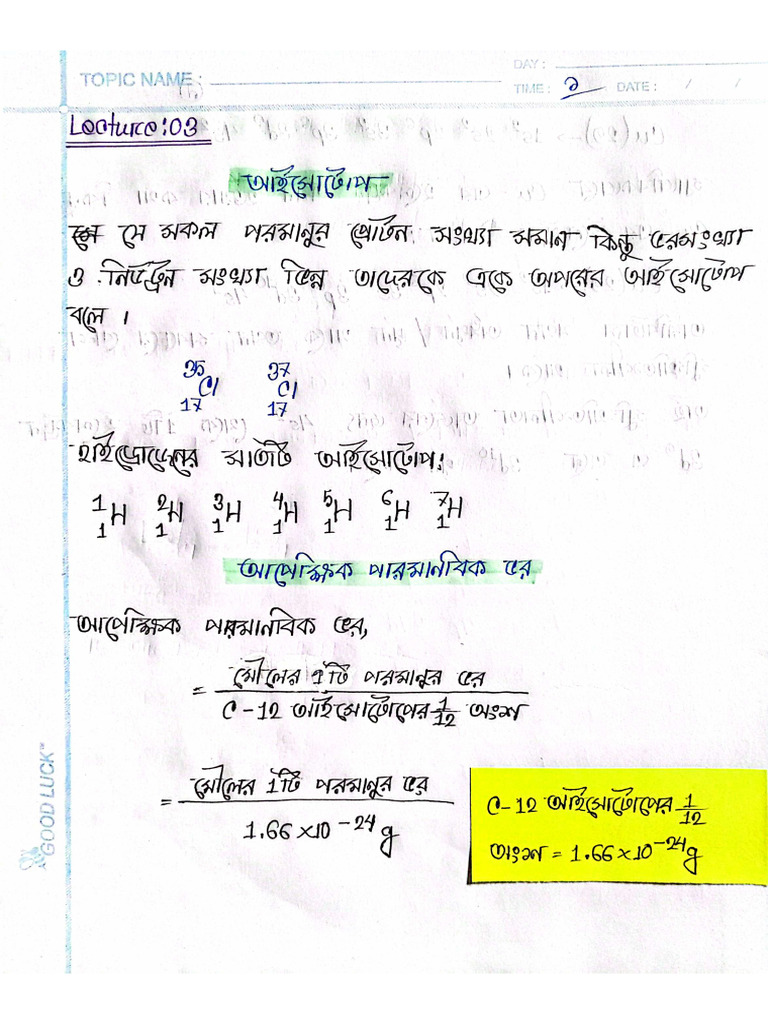 TOPIC NAME :
DAY :
TIME : ১ DATE : / /
Lecture:03
আইসোটোপ
যে সকল পরমানুর প্রোটন সংখ্যা সমান কিন্তু ভরসংখ্যা
ও নিউট্রন সংখ্যা ভিন্ন তাদেরকে একে অপরের আইসোটোপ
বলে ।
³⁵₁₇Cl ³⁷₁₇Cl
হাইড্রোজেনের সাতটি আইসোটোপ:
¹₁H ²₁H ³₁H ⁴₁H ⁵₁H ⁶₁H ⁷₁H
আপেক্ষিক পারমানবিক ভর
আপেক্ষিক পারমানবিক ভর,
= মৌলের 1টি পরমানুর ভর
C-12 আইসোটোপের 1/12 অংশ
= মৌলের 1টি পরমানুর ভর
1.66×10⁻²⁴g
C-12 আইসোটোপের 1/12
অংশ = 1.66×10⁻²⁴g
GOOD LUCK™